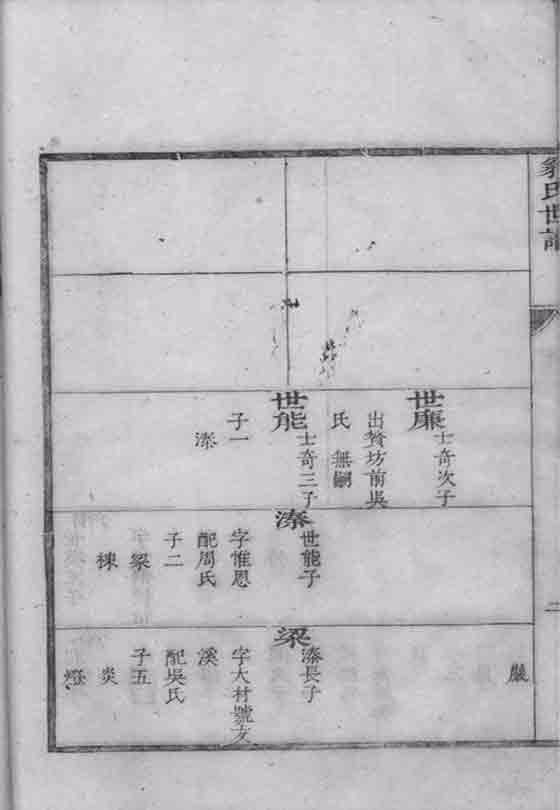 氏世譜
二
世廉
士奇次子
出贅坊前吳
氏 無嗣
世能
士奇三子
子一
溱
溱
世能子
字惟恩
配周氏
子二
梁
棟
巖
梁
溱長子
字大材號友
溪
配吳氏
子五
炎
燈